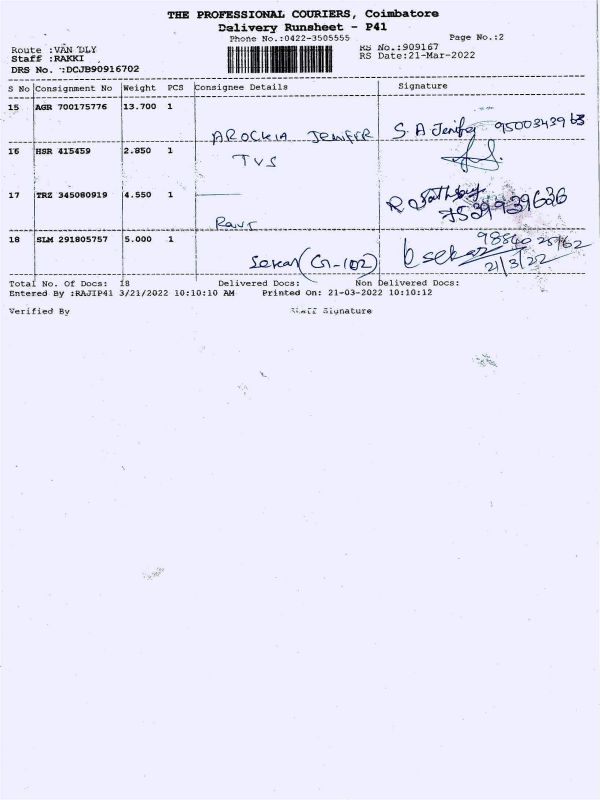 THE PROFESSIONAL COURIERS, Coimbatore
Delivery Runsheet - P41
Phone No.:0422-3505555 Page No.:2
Route :VAN DLY RS No.:909167
Staff :RAKKI RS Date:21-Mar-2022
DRS No. :DCJB90916702
S No Consignment No Weight PCS Consignee Details Signature
15 AGR 700175776 13.700 1
AROCKIA JENIFER S. A Jenifer 9500343963
16 HSR 415459 2.850 1
TVS
17 TRZ 345080919 4.550 1
7539939636
Ravi
18 SLM 291805757 5.000 1
Sekar (G-102) b sekar
21/3/22
Total No. Of Docs: 18 Delivered Docs: Non Delivered Docs:
Entered By :RAJIP41 3/21/2022 10:10:10 AM Printed On: 21-03-2022 10:10:12
Verified By Staff Signature